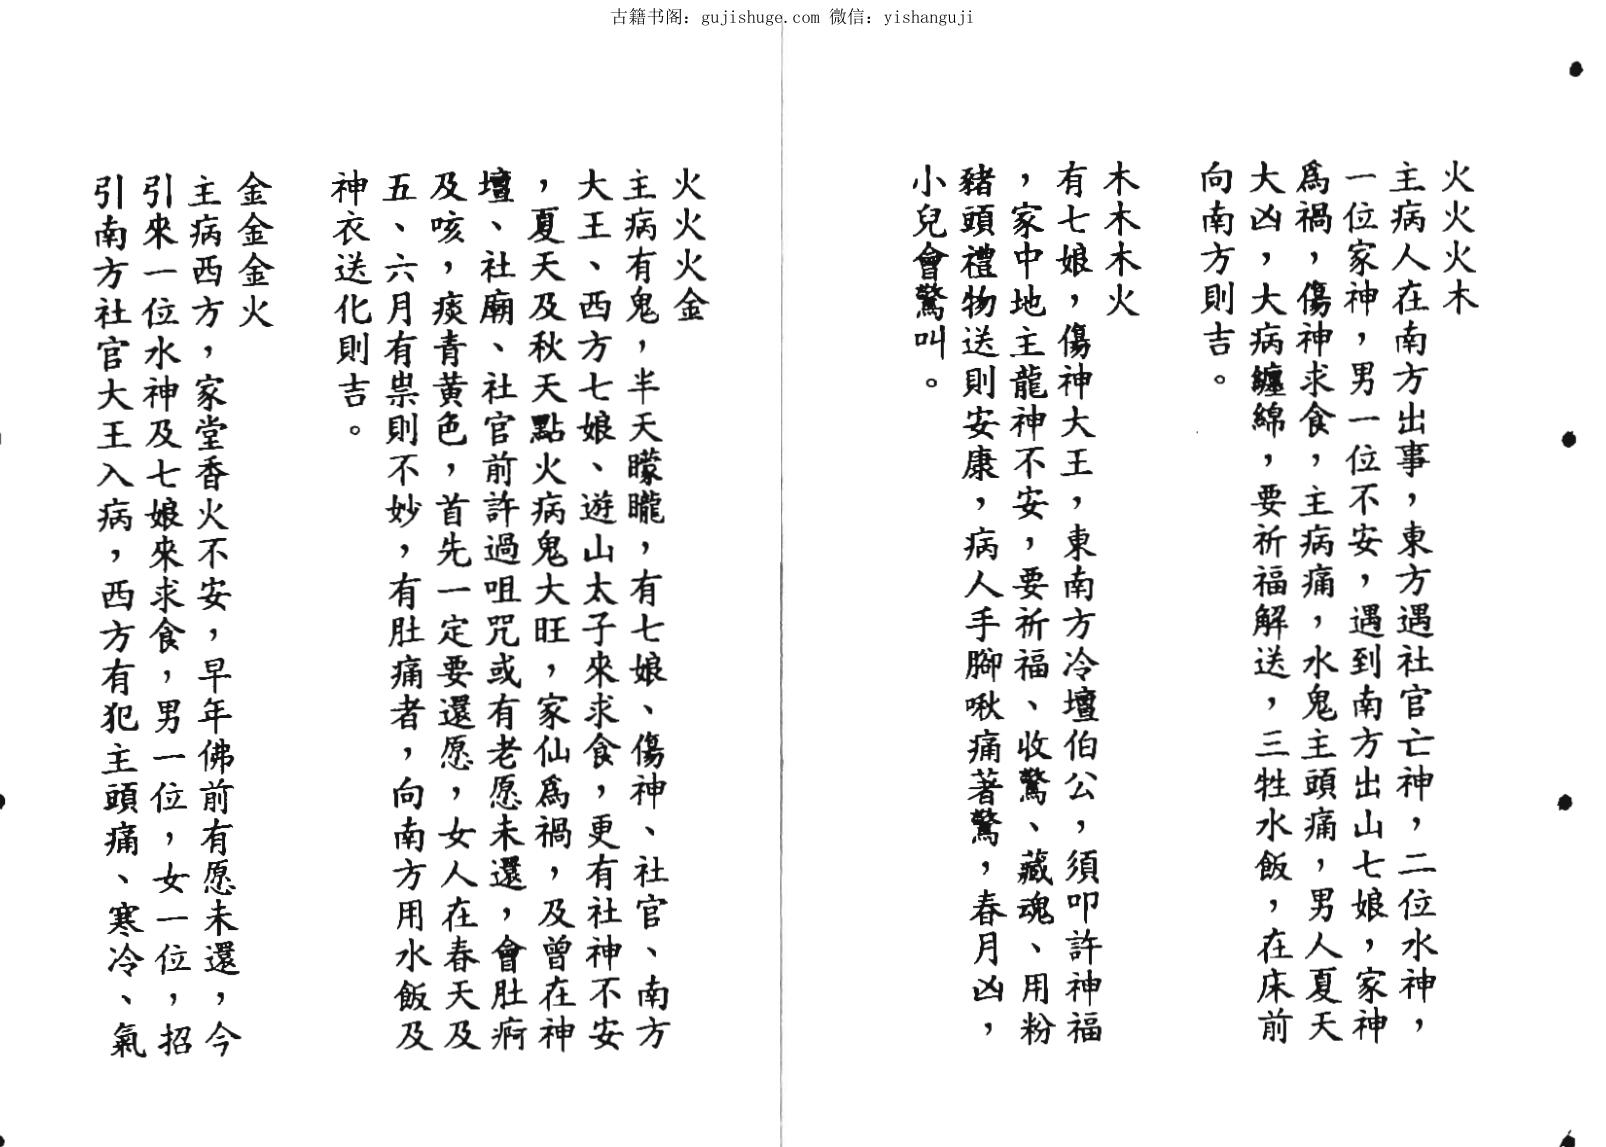 古籍书阁：gujishuge.com 微信：yishanguji
火火火木
主病人在南方出事，東方遇社官亡神，二位水神，
一位家神，男一位不安，遇到南方出山七娘，家神
爲禍，傷神求食，主病痛，水鬼主頭痛，男人夏天
大凶，大病纏綿，要祈福解送，三牲水飯，在床前
向南方則吉。
木木木火
有七娘，傷神大王，東南方冷壇伯公，須叩許神福
，家中地主龍神不安，要祈福、收驚、藏魂、用粉
豬頭禮物送則安康，病人手腳啾痛著驚，春月凶，
小兒會驚叫。
火火火金
主病有鬼，半天矇矓，有七娘、傷神、社官、南方
大王、西方七娘、遊山太子來求食，更有社神不安
，夏天及秋天點火病鬼大旺，家仙爲禍，及曾在神
壇、社廟、社官前許過咀咒或有老愿未還，會肚疴
及咳，痰青黃色，首先一定要還愿，女人在春天及
五、六月有祟則不妙，有肚痛者，向南方用水飯及
神衣送化則吉。
金金金火
主病西方，家堂香火不安，早年佛前有愿未還，今
引來一位水神及七娘來求食，男一位，女一位，招
引南方社官大王入病，西方有犯主頭痛、寒冷、氣